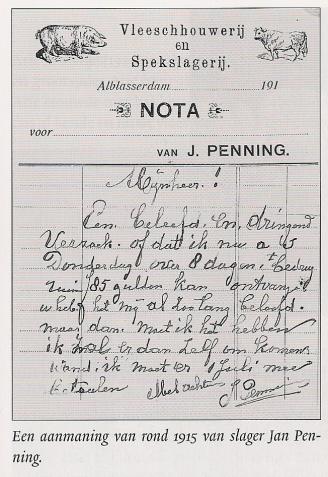 Vleeschhouwerij
en
Spekslagerij.
Alblasserdam 191
NOTA
voor
VAN J. PENNING.
Mijnheer.!
Een beleefd. en, dringend
Verzoek. of dat ik nu a s
Donderdag over 8 dagen. t bedrag
85 gulden kan ontvangen
u heb het mij al zoo lang beloofd.
maar dan. Moet ik het hebben
ik er dan zelf om komen
want. ik moet er 1 Juli mee
betaalen Met achten
J Penning
Een aanmaning van rond 1915 van slager Jan Pen-
ning.